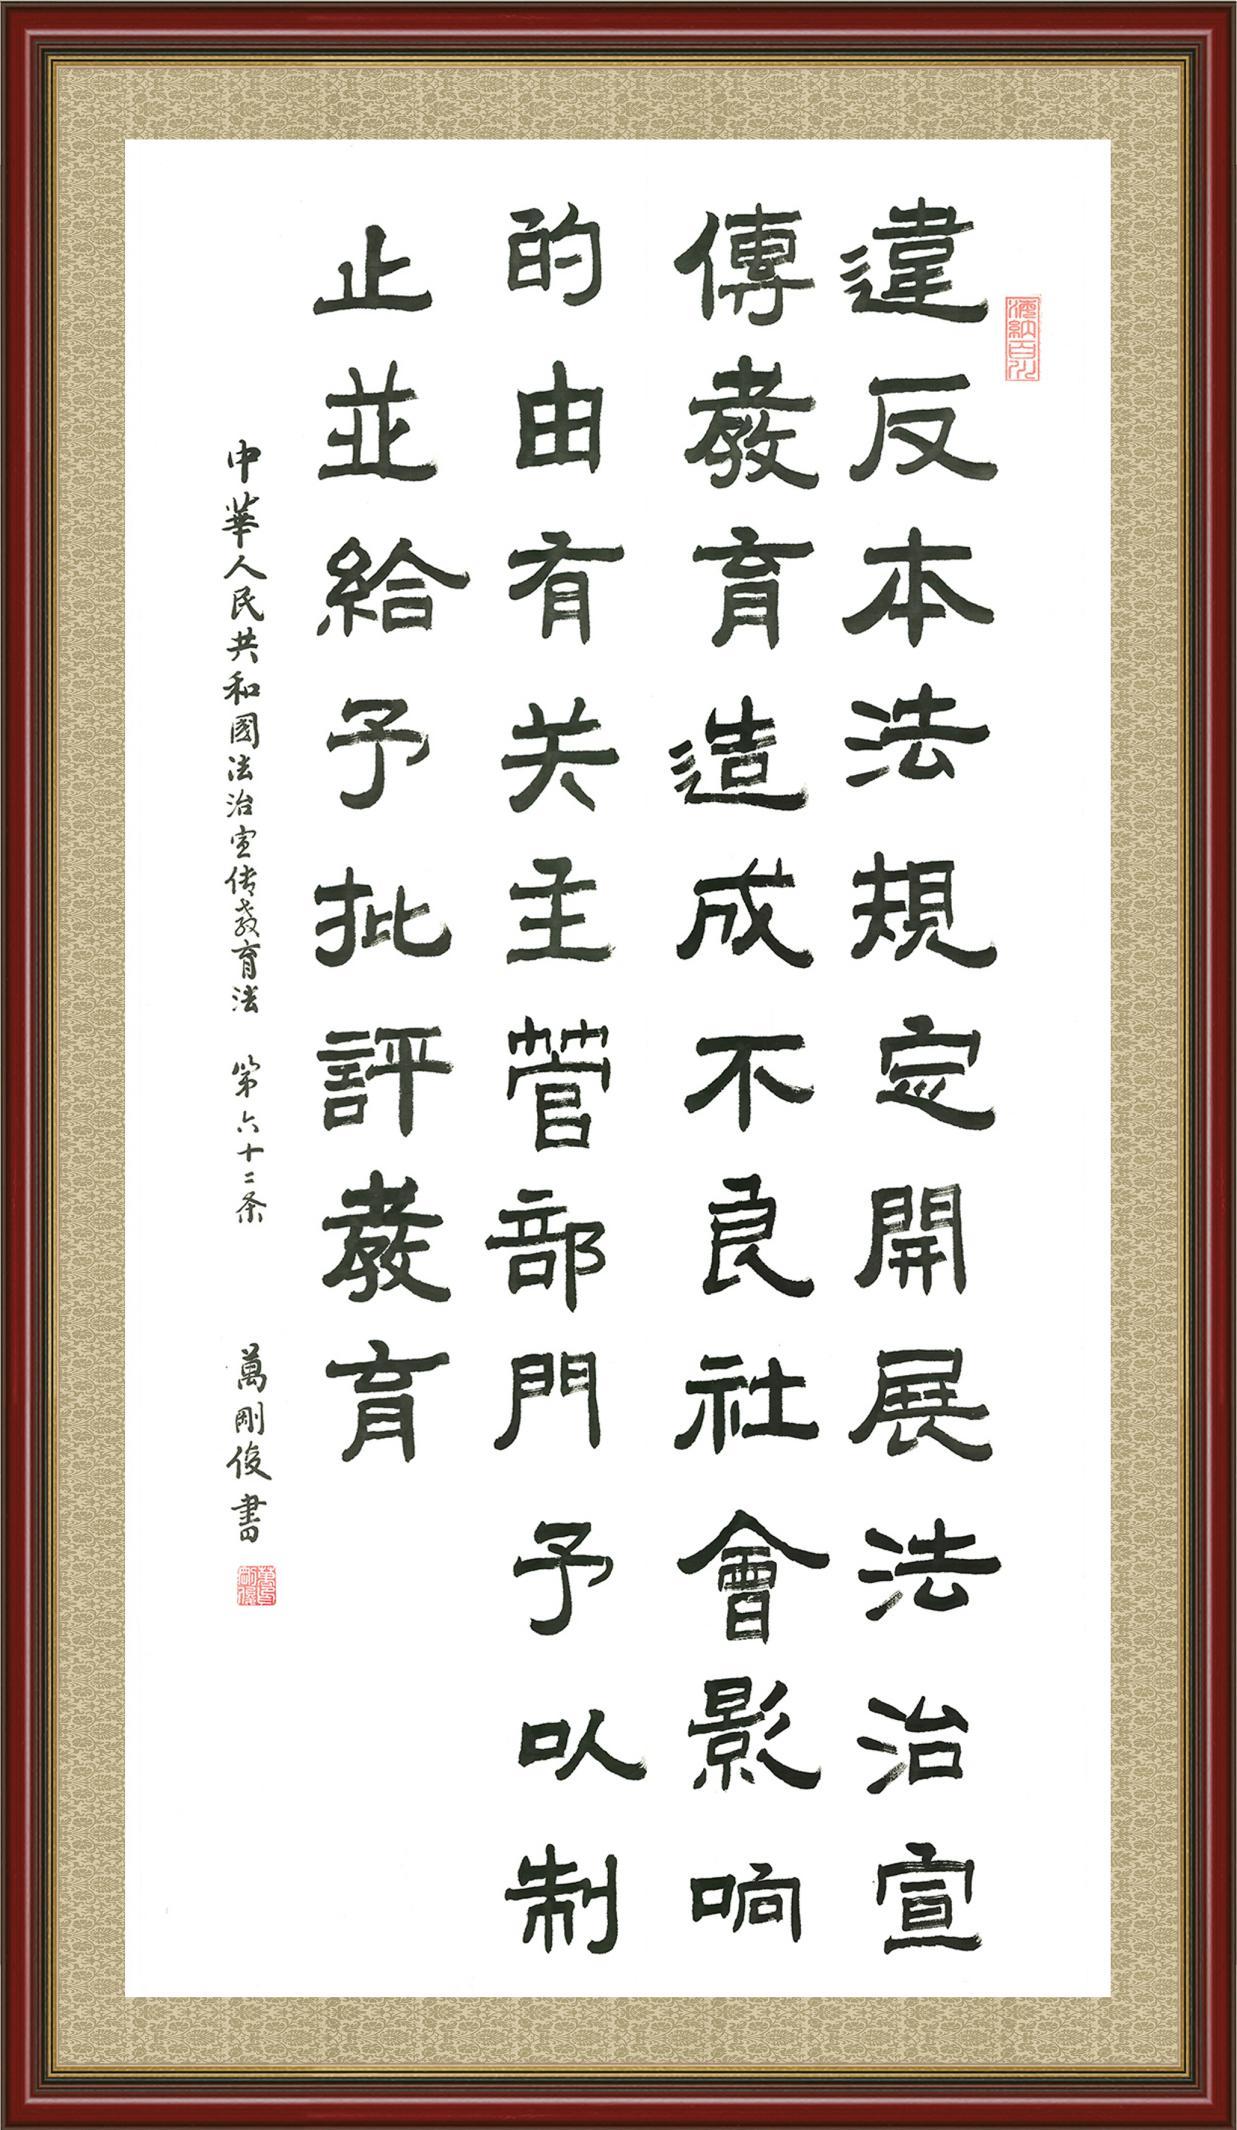 違反本法規定開展法治宣
傳教育造成不良社會影响
的由有关主管部門予以制
止並給予批評教育
中華人民共和國法治宣传教育法 第六十二条 萬剛俊書
海納百川